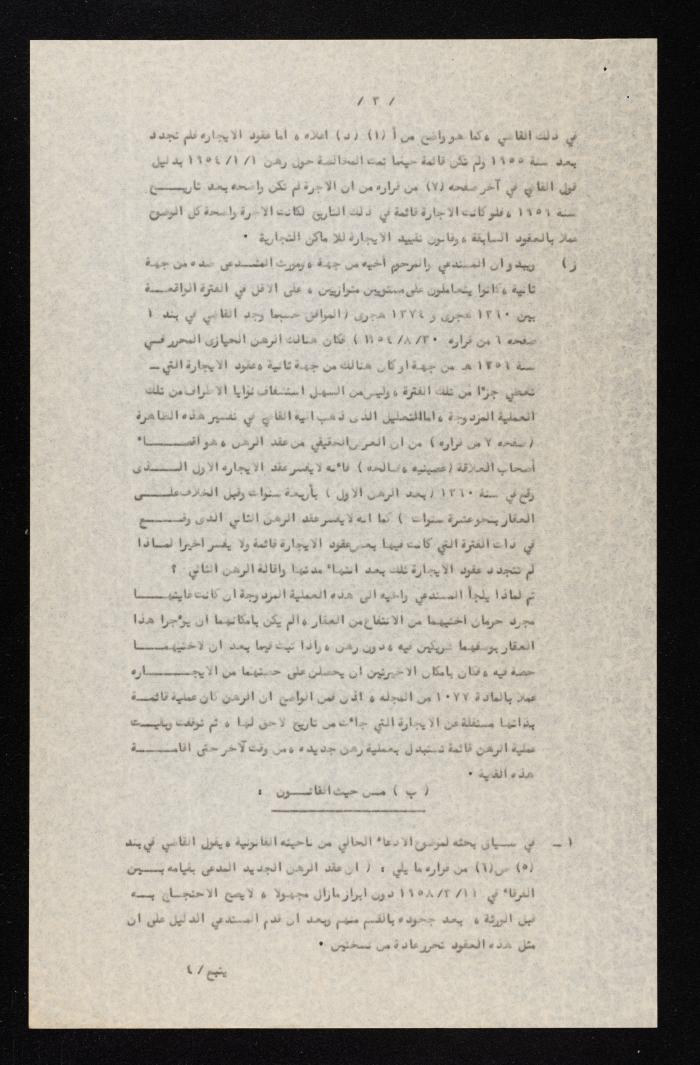 / ٣ /
في ذلك القاضي ، كما هو واضح من أ (١) (د) اعلاه ، اما عقود الايجاره فلم تجدد
بعد سنة ١٩٥٥ ولم تكن قائمة حينما تمت المخالصة حول رهن ١/١/١٩٥٤ بدليل
قول القاضي في آخر صفحه (٧) من قراره من ان الاجرة لم تكن واضحه بعد تاريـــخ
سنة ١٩٥٦ ، فلو كانت الاجارة قائمة في ذلك التاريخ لكانت الاجرة واضحة كل الوضوح
عملا بالعقود السابقة ، وقانون تقييد الايجارة للاماكن التجارية .
ز ) ويبدو ان المستدعي والمرحوم اخيه من جهة ، ومورث المستدعى ضده من جهة
ثانية ، كانوا يتعاملون على مستويين متوازيين ، على الاقل في الفترة الواقعـــة
بين ١٣٦٠ هجرى و ١٣٧٤ هجرى ( الموافق حسبما وجد القاضي في بند ١
صفحه ٦ من قراره ٣٠/٨/١٩٥٤ ) فكان هنالك الرهن الحيازى المحرر فــي
سنة ١٣٥٦ هـ من جهة او كان هنالك من جهة ثانية ، عقود الايجارة التي ــ
تغطي جزءا من تلك الفترة ، وليس من السهل استشفاف نوايا الاطراف من تلك
العملية المزدوجة ، اما التعليل الذى ذهب اليه القاضي في تفسير هذه الظاهرة
( صفحه ٧ من قراره ) من ان الغرض الحقيقي من عقد الرهن ، هو اقصـــــاء
أصحاب العلاقة ( وصالحه ) فانه لا يفسر عقد الايجاره الاول الـــــذى
وقع في سنة ١٣٦٠ ( بعد الرهن الاول ) بأربعة سنوات وقبل الخلاف علـــى
العقار بنحو عشرة سنوات ) كما انه لا يفسر عقد الرهن الثاني الذى وقـــــع
في ذات الفترة التي كانت فيها بعض عقود الايجارة قائمة ولا يفسر اخيرا لمـــاذا
لم تتجدد عقود الايجارة تلك بعد انتهاء مدتها واقالة الرهن الثاني ؟
ثم لماذا يلجأ المستدعي واخيه الى هذه العملية المزدوجة ان كانت غايتهــــا
مجرد حرمان اختيهما من الانتفاع من العقار ، الم يكن بامكانهما ان يؤجرا هذا
العقار بوصفهما شريكين فيه ، دون رهن ، واذا ثبت فيما بعد ان لاختيهمــــا
حصة فيه ، فكان بامكان الاخيرتين ان يحصلن على حصتهما من الايجـــــاره
عملا بالمادة ١٠٧٧ من المجله ، اذن فمن الواضح ان الرهن كان عملية قائمــة
بذاتها مستقلة عن الايجارة التي جاءت من تاريخ لاحق لها ، ثم توقفت وبقيــت
عملية الرهن قائمة تستبدل بعملية رهن جديده ، من وقت لآخر حتى اقامــــة
هذه القضية .
( ب ) مــن حيث القانــــون :
١ ــ في سياق بحثه لموضوع الادعاء الحالي من ناحيته القانونية ، يقول القاضي في بند
(٥) ص(٦) من قراره ما يلي : ( ان عقد الرهن الجديد المدعى بقيامه بـــين
الفرقاء في ١١/٣/١٩٥٨ دون ابراز مازال مجهولا ، لا يصح الاحتجـــاج بـــه
قبل الورثة ، بعد جحوده بالقسم منهم وبعد ان قدم المستدعي الدليل على ان
مثل هذه العقود تحرر عادة من نسختين .
يتبع / ٤